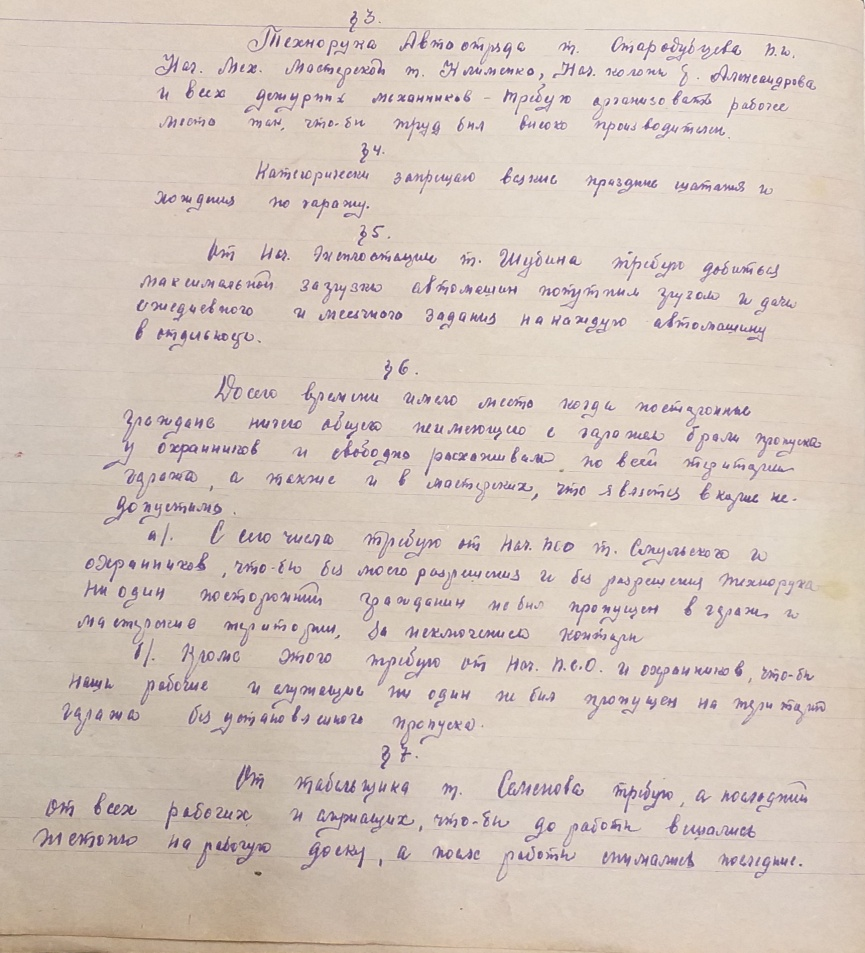 § 3.
Технорука Автоотряда т. Старобубцева П.И.
Нач. Мех. Мастерской т. Клименко, Нач. колоны т. Александрова
и всех дежурных механников - требую организовать рабочее
место так, что-бы труд был высоко производителен.
§ 4.
Категорически запрещаю всякие праздные шатания и
хождения по гаражу.
§ 5.
От Нач. Эксплоатации т. Шубина требую добиться
максимальной загрузки автомашин попутным грузом и дачи
ежедневного и месячного задания на каждую автомашину
в отдельность.
§ 6.
Досего времени имело место когда посторонные
граждане ничего общего неимеющие с гаражем брали пропуска
у охранников и свободно расхаживали по всей територии
гаража, а также и в мастерских, что является в корне не-
допустимо.
а/. С сего числа требую от Нач. ПСО т. Смульского и
охранников, что-бы без моего разрешения и без разрешения Технорука
ни один посторонний гражданин небыл пропущен в гараж и
мастерские територии, за исключением конторы
б/. Кроме этого требую от Нач. П.С.О. и охранников, что-бы
наши рабочие и служащие ни один не был пропущен на територию
гаража без установленного пропуска.
§ 7.
От табельщика т. Семенова требую, а последний
от всех рабочих и служащих, что-бы до работы вешались
жетоны на рабочую доску, а после работы снимались последние.